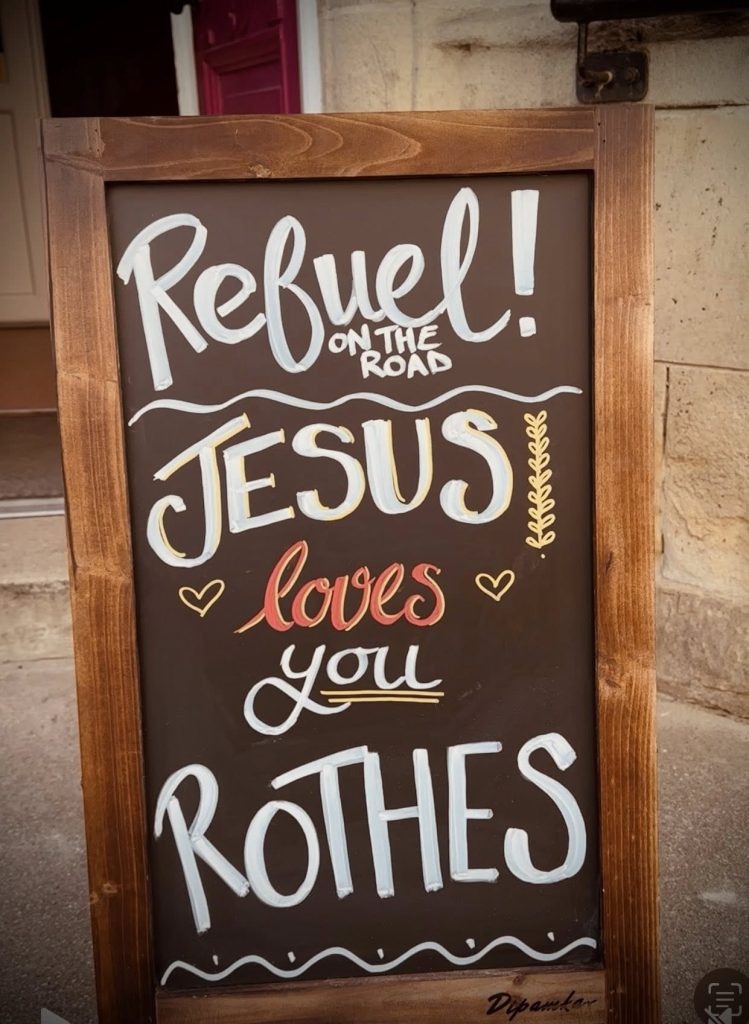 Refuel!
ON THE
ROAD
JESUS
loves
you
ROTHES
Dipamkar